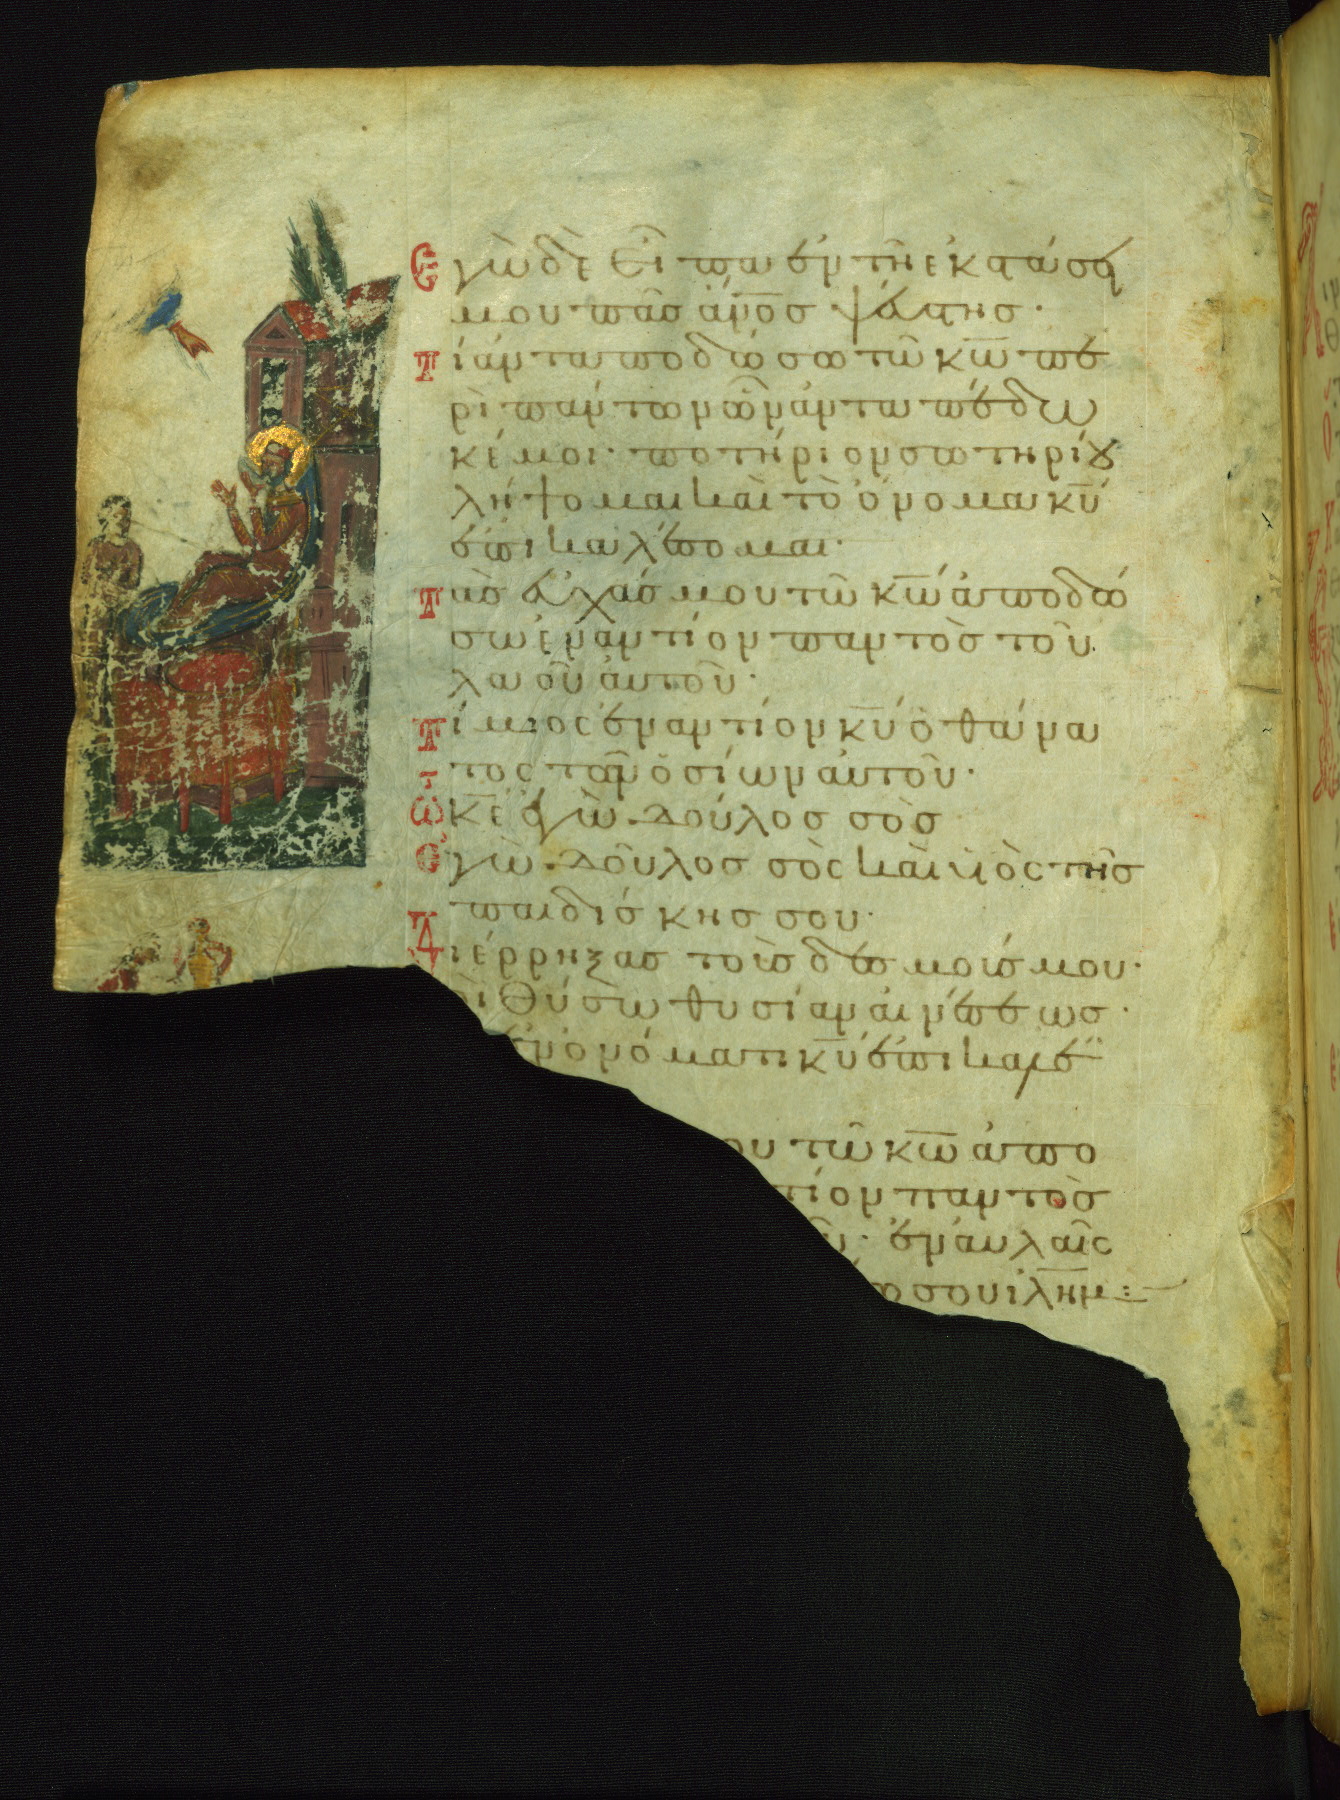 Ἐγὼ δὲ εἶπα ἐν τῆ ἐκστάσει
μου πᾶσ ἄν̅οσ ψεύστησ·
Τί ἀνταποδώσω τῶ κ̅ω̅ πε
ρὶ πάντων ὧν ἀνταπέδω
κέ μοι· ποτήριον σωτηρίου
λήψομαι καὶ τὸ ὄνομα κ̅υ̅
ἐπικαλέσομαι·
Τὰσ εὐχάσ μου τῶ κ̅ω̅ ἀποδώ
σω ἐναντίον παντὸσ τοῦ
λαοῦ αὐτοῦ·
Τίμιος ἐναντίον κ̅υ̅ ὁ θάνα
τος τῶν ὁσίων αὐτοῦ·
Ὦ κ̅ε̅ ἐγὼ δούλοσ σὸσ
Ἐγὼ δοῦλοσ σὸς καὶ υἱὸς τῆσ
παιδίσκησ σου·
Διέρρηξασ τοὺσ δεσμούσ μου·
σοὶ θύσω θυσίαν αἰνέσεωσ·
ἐν ὀνόματι κ̅υ̅ ἐπικαλέ
ου τῶ κ̅ω̅ ἀπο
τίον παντὸσ
ῦ· ἐν αὐλαῖς
ω σου ἰ̅λ̅η̅μ̅: